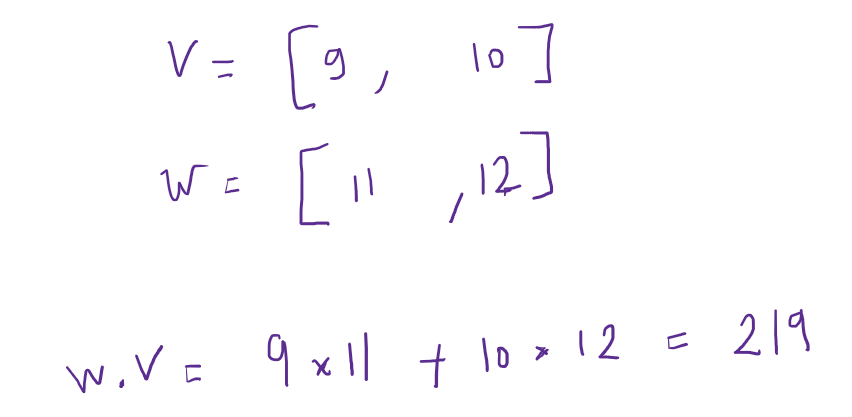 V = [9, 10]
W = [11, 12]
W.V = 9 x 11 + 10 x 12 = 219